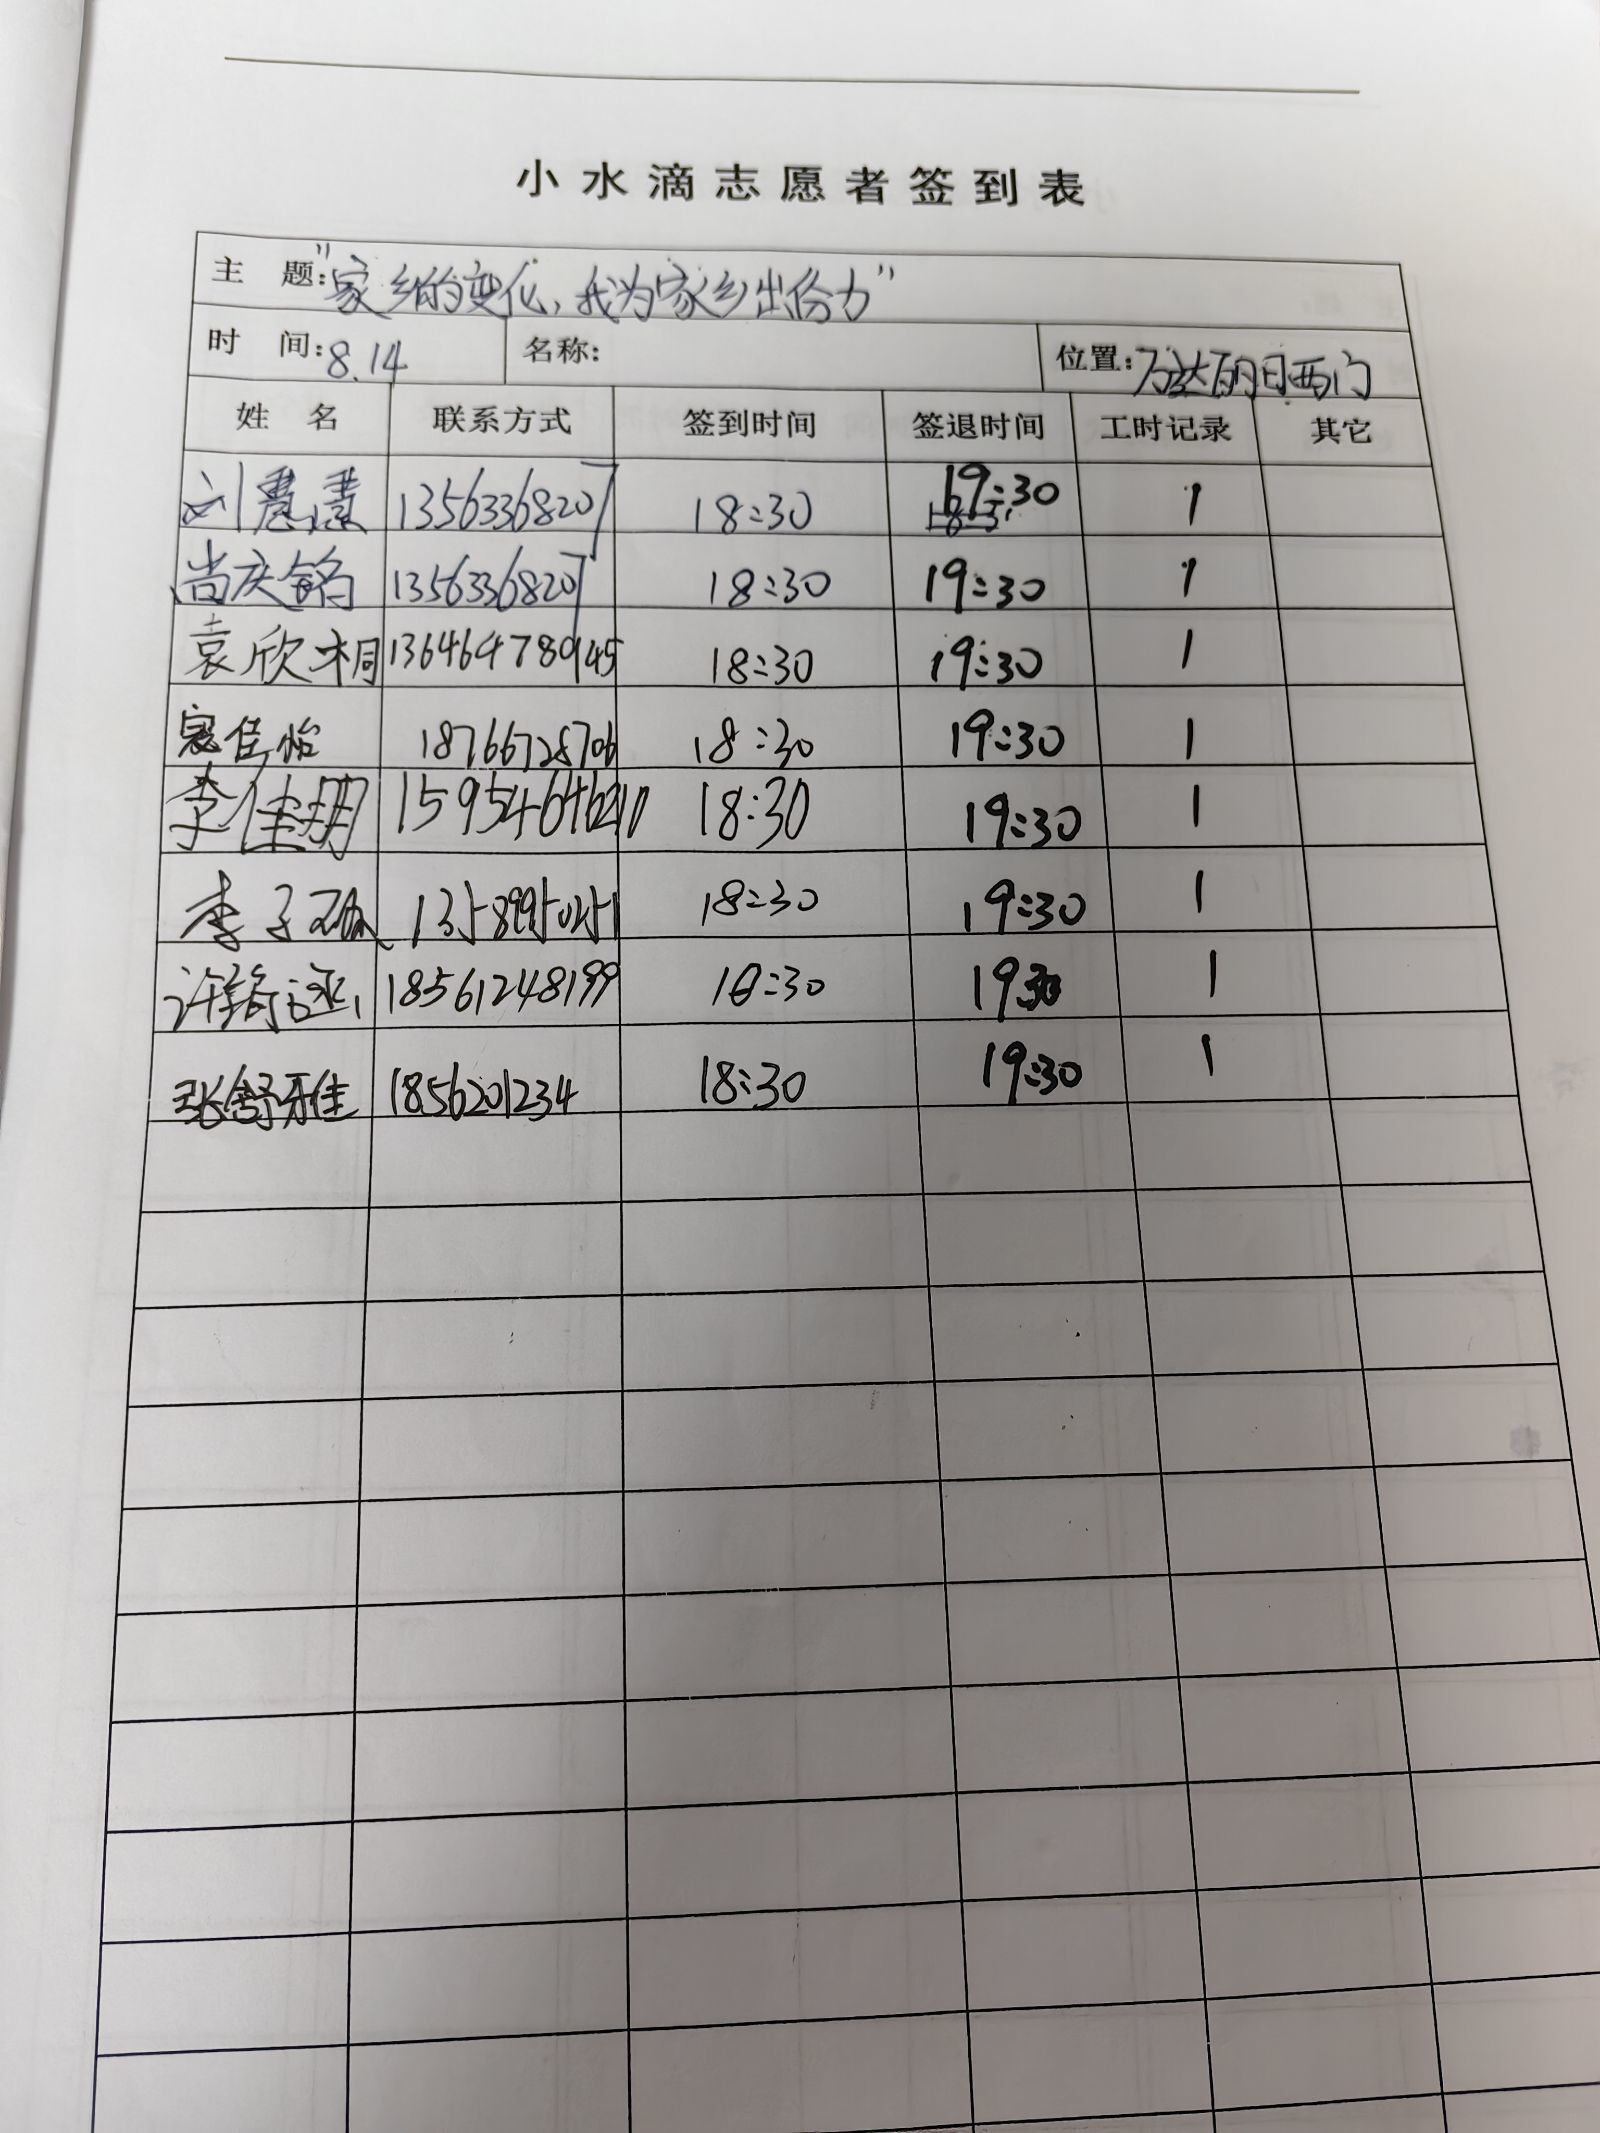 小水滴志愿者签到表
主 题:"家乡的变化,我为家乡出份力"
时 间:8.14 名称: 位置:万达 西门
姓 名 联系方式 签到时间 签退时间 工时记录 其它
刘慧慧 13563368207 18:30 19:30 1
尚庆铭 13563368207 18:30 19:30 1
袁欣桐 18:30 19:30 1
寇佳怡 18766728706 18:30 19:30 1
李佳玥 18:30 19:30 1
李子 13589950251 18:30 19:30 1
许 18561248199 18:30 19:30 1
张舒雅佳 1856201234 18:30 19:30 1